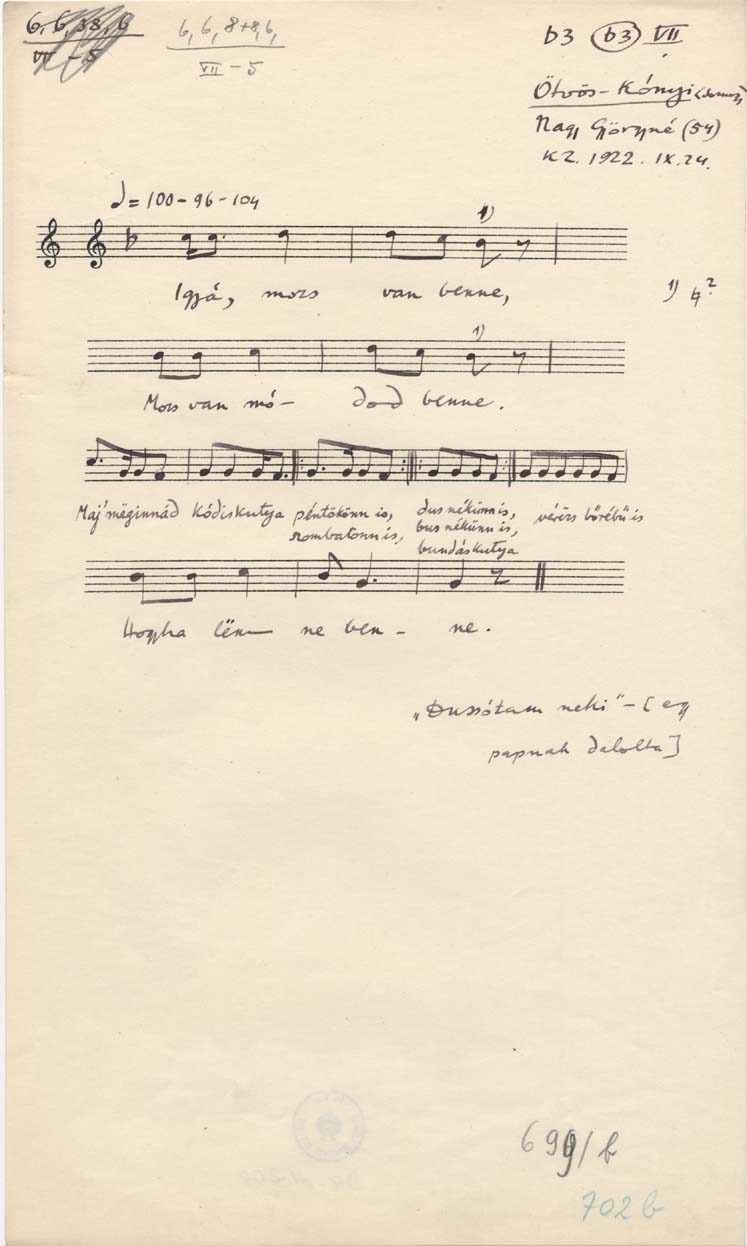 6, 6, 38, 6
VII - 5
6, 6, 8+8, 6,
VII - 5
b3 (b3) VII
Ötvös-Kónyi
Nagy Györgyné (54)
KZ. 1922. IX. 24.
= 100 - 96 - 104
1)
Igyá, mozs van benne,
1) ♮?
1)
Mos van mó- dod benne.
Maj' mëginnád kódiskutya péntökönn is, dus nékünn is, vérözs bőrébű is
szombatonn is, bus nékünn is,
bundáskutya
Hogyha lënne ne ben- ne.
„Dussótam neki" - [egy
papnak dalolta]
699/b
702 b